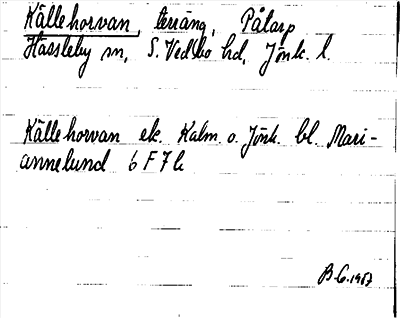 Källehorvan, terräng, Pålarp
Hässleby sn, S. Vedbo hd, Jönk. l.
Källehorvan ek. Kalm. o. Jönk. bl. Mari-
annelund 6 F 7 h
B-G. 1967